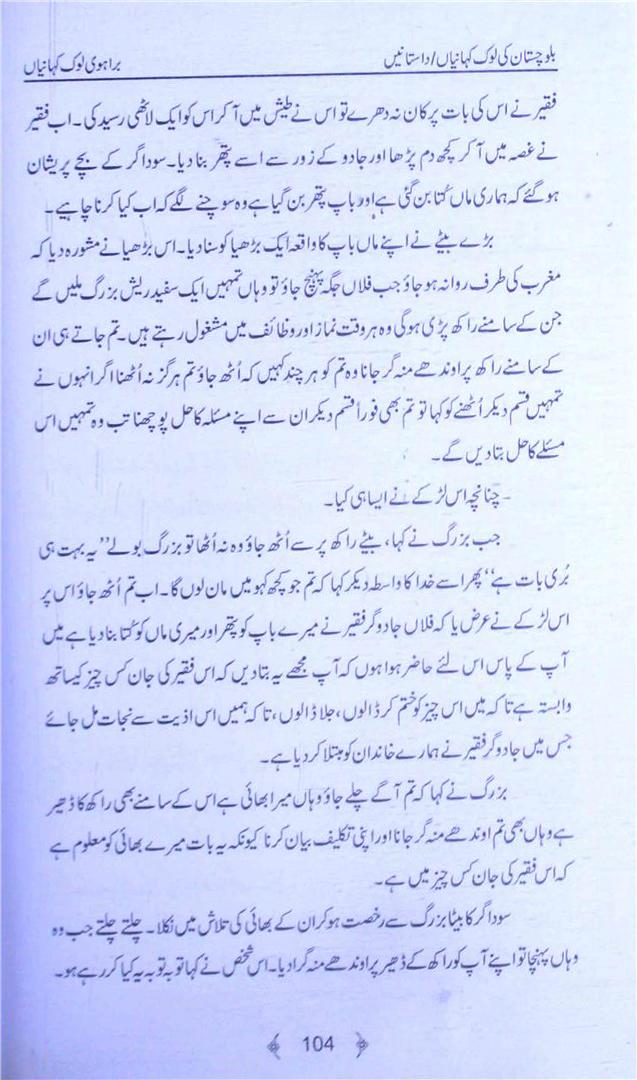 بلوچستان کی لوک کہانیاں/داستانیں
براہوی لوک کہانیاں
فقیر نے اس کی بات پر کان نہ دھرے تو اس نے طیش میں آ کر اس کو ایک لاٹھی رسید کی۔ اب فقیر
نے غصہ میں آ کر کچھ دم پڑھا اور جادو کے زور سے اسے پتھر بنا دیا۔ سوداگر کے بچے پریشان
ہو گئے کہ ہماری ماں کُتا بن گئی ہے اور باپ پتھر بن گیا ہے وہ سوچنے لگے کہ اب کیا کرنا چاہیے۔
بڑے بیٹے نے اپنے ماں باپ کا واقعہ ایک بڑھیا کو سنا دیا۔ اس بڑھیا نے مشورہ دیا کہ
مغرب کی طرف روانہ ہو جاؤ جب فلاں جگہ پہنچ جاؤ تو وہاں تمہیں ایک سفید ریش بزرگ ملیں گے
جن کے سامنے راکھ پڑی ہو گی وہ ہر وقت نماز اور وظائف میں مشغول رہتے ہیں۔ تم جاتے ہی ان
کے سامنے راکھ پر اوندھے منہ گر جانا وہ تم کو ہر چند کہیں کہ اُٹھ جاؤ تم ہرگز نہ اُٹھنا اگر انہوں نے
تمہیں قسم دیکر اُٹھنے کو کہا تو تم بھی فوراً قسم دیکر ان سے اپنے مسئلہ کا حل پوچھنا تب وہ تمہیں اس
مسئلے کا حل بتا دیں گے۔
- چنانچہ اس لڑکے نے ایسا ہی کیا۔
جب بزرگ نے کہا، بیٹے راکھ پر سے اُٹھ جاؤ وہ نہ اُٹھا تو بزرگ بولے ”یہ بہت ہی
بُری بات ہے“ پھر اسے خدا کا واسطہ دیکر کہا کہ تم جو کچھ کہو میں مان لوں گا۔ اب تم اُٹھ جاؤ اس پر
اس لڑکے نے عرض یا کہ فلاں جادوگر فقیر نے میرے باپ کو پتھر اور میری ماں کو کُتا بنا دیا ہے میں
آپ کے پاس اس لئے حاضر ہوا ہوں کہ آپ مجھے یہ بتا دیں کہ اس فقیر کی جان کس چیز کیساتھ
وابستہ ہے تاکہ میں اس چیز کو ختم کر ڈالوں، جلا ڈالوں، تاکہ ہمیں اس اذیت سے نجات مل جائے
جس میں جادوگر فقیر نے ہمارے خاندان کو مبتلا کر دیا ہے۔
بزرگ نے کہا کہ تم آگے چلے جاؤ وہاں میرا بھائی ہے اس کے سامنے بھی راکھ کا ڈھیر
ہے وہاں بھی تم اوندھے منہ گر جانا اور اپنی تکلیف بیان کرنا کیونکہ یہ بات میرے بھائی کو معلوم ہے
کہ اس فقیر کی جان کس چیز میں ہے۔
سوداگر کا بیٹا بزرگ سے رخصت ہو کر ان کے بھائی کی تلاش میں نکلا۔ چلتے چلتے جب وہ
وہاں پہنچا تو اپنے آپ کو راکھ کے ڈھیر پر اوندھے منہ گرا دیا۔ اس شخص نے کہا توبہ توبہ یہ کیا کر رہے ہو۔
104